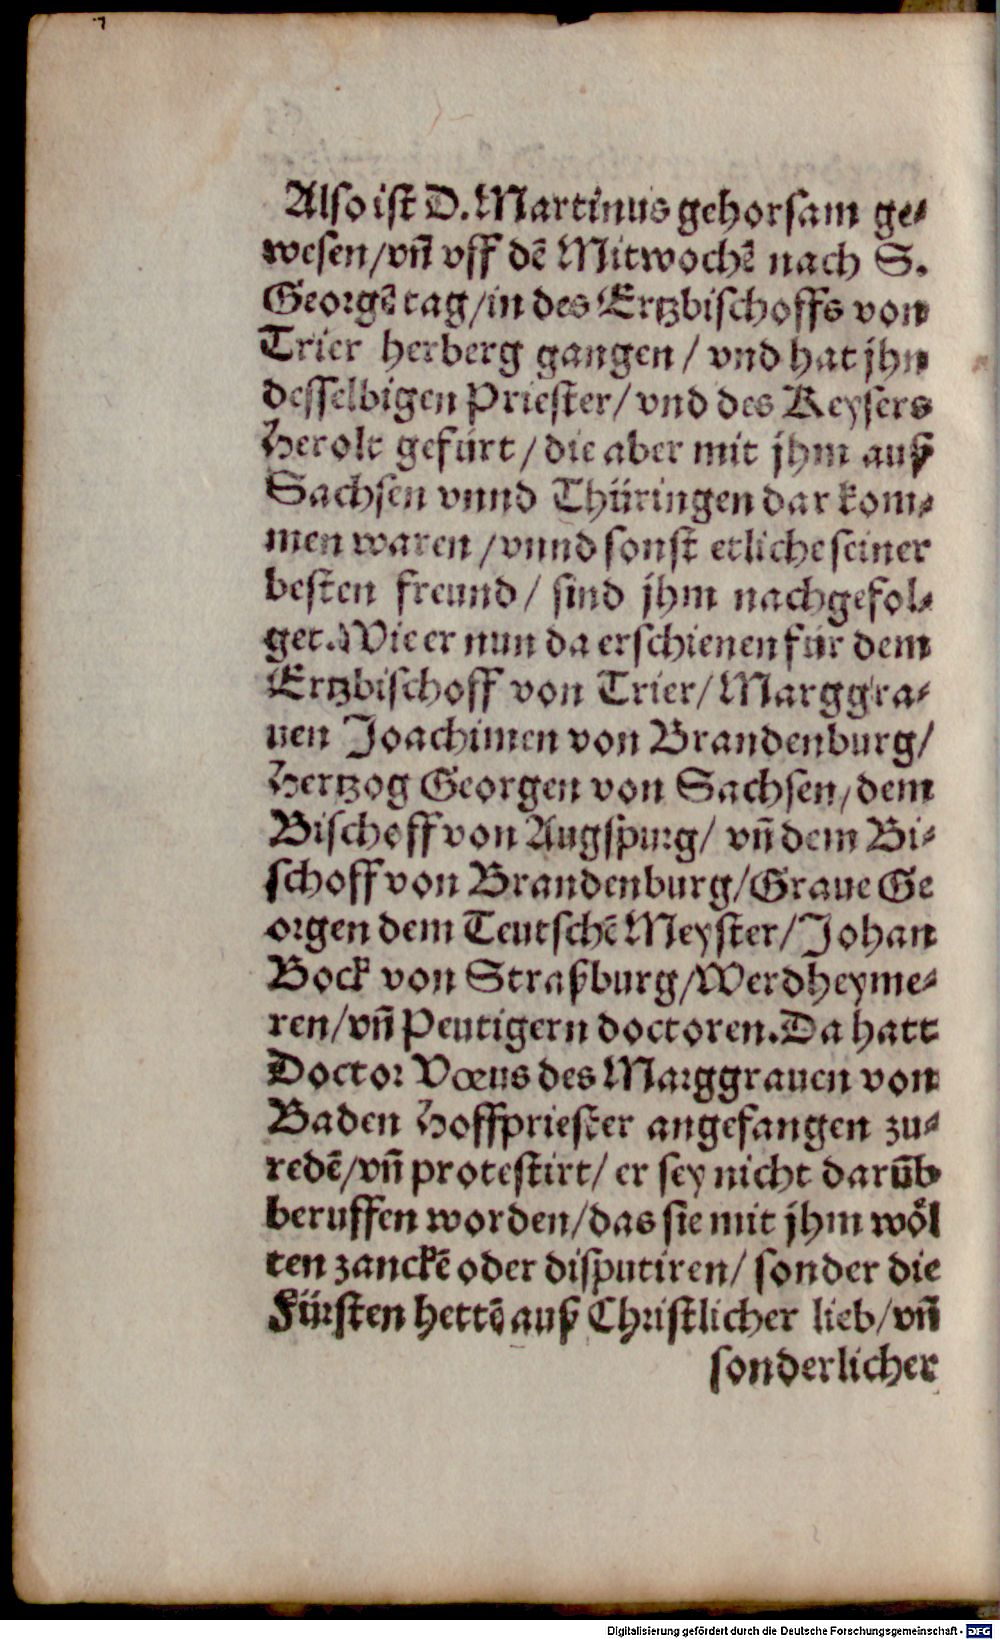 Also ist D. Martinus gehorsam ge⸗
wesen/vñ vff dẽ Mitwochẽ nach S.
Georgẽ tag/in des Ertzbischoffs von
Trier herberg gangen/ vnd hat jhn
desselbigen Priester/ vnd des Keysers
Herolt gefürt/ die aber mit jhm auß
Sachsen vnnd Thüringen dar kom⸗
men waren/vnnd sonst etliche seiner
besten freund/ sind jhm nachgefol⸗
get. Wie er nun da erschienen für dem
Ertzbischoff von Trier/ Marggra⸗
uen Joachimen von Brandenburg/
Hertzog Georgen von Sachsen/dem
Bischoff von Augspurg/ vñ dem Bi⸗
schoff von Brandenburg/Graue Ge
orgen dem Teutschẽ Meyster/Johan
Bock von Straßburg/Werdheyme⸗
ren/vñ Peutigern doctoren. Da hatt
Doctor Vœus des Marggrauen von
Baden Hoffpriester angefangen zu⸗
redẽ/vñ protestirt/ er sey nicht darũb
beruffen worden/das sie mit jhm wöl
ten zanckẽ oder disputiren/ sonder die
Fürsten hettẽ auß Christlicher lieb/vñ
sonderlicher
Digitalisierung gefördert durch die Deutsche Forschungsgemeinschaft - DFG